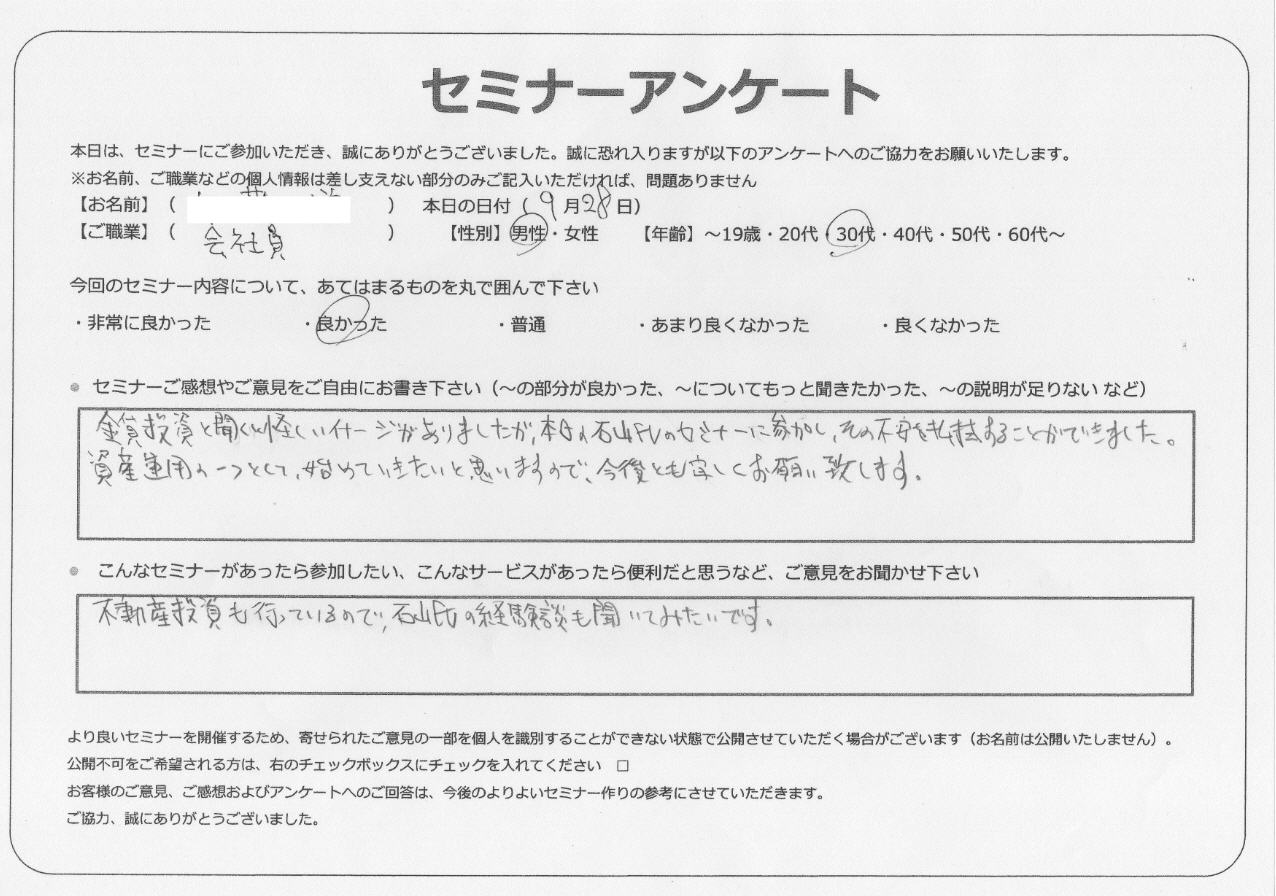 セミナーアンケート
本日は、セミナーにご参加いただき、誠にありがとうございました。誠に恐れ入りますが以下のアンケートへのご協力をお願いいたします。
※お名前、ご職業などの個人情報は差し支えない部分のみご記入いただければ、問題ありません
【お名前】（ ） 本日の日付（ 9月28日）
【ご職業】（ 会社員 ） 【性別】男性・女性 【年齢】～19歳・20代・30代・40代・50代・60代～
今回のセミナー内容について、あてはまるものを丸で囲んで下さい
・非常に良かった ・良かった ・普通 ・あまり良くなかった ・良くなかった
● セミナーご感想やご意見をご自由にお書き下さい（～の部分が良かった、～についてもっと聞きたかった、～の説明が足りない など）
投資と聞くと怪しいイメージがありましたが、本日の石山氏のセミナーに参加し、その不安を払拭することができました。
資産運用の一つとして、始めていきたいと思いますので、今後とも宜しくお願い致します。
● こんなセミナーがあったら参加したい、こんなサービスがあったら便利だと思うなど、ご意見をお聞かせ下さい
不動産投資も行っているので、石山氏の経験談も聞いてみたいです。
より良いセミナーを開催するため、寄せられたご意見の一部を個人を識別することができない状態で公開させていただく場合がございます（お名前は公開いたしません）。
公開不可をご希望される方は、右のチェックボックスにチェックを入れてください □
お客様のご意見、ご感想およびアンケートへのご回答は、今後のよりよいセミナー作りの参考にさせていただきます。
ご協力、誠にありがとうございました。